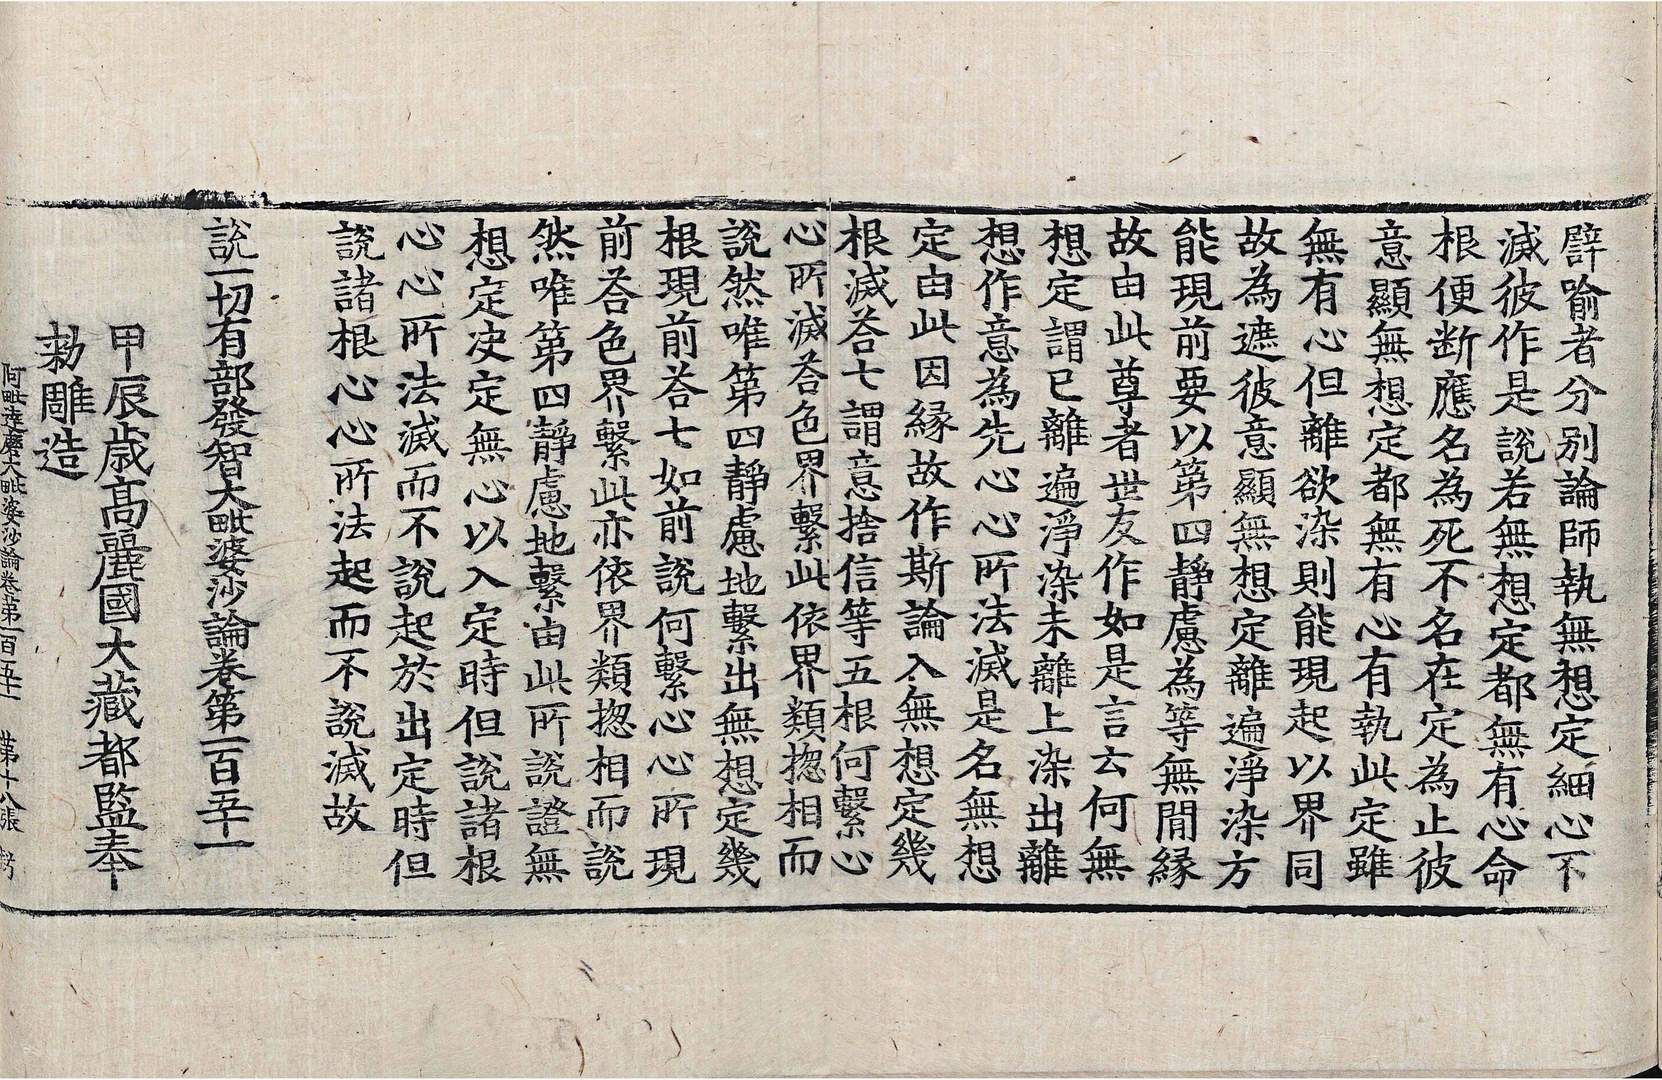 譬喻者分別論師執無想定細心不
滅彼作是說若無想定都無有心命
根便断應名為死不名在定為止彼
意顯無想定都無有心有執此定雖
無有心但離欲染則能現起以界同
故為遮彼意顯無想定離遍淨染方
能現前要以第四靜慮為等無間緣
故由此尊者世友作如是言云何無
想定謂已離遍淨染未離上染出離
想作意為先心心所法滅是名無想
定由此因緣故作斯論入無想定幾
根滅荅七謂意捨信等五根何繫心
心所滅荅色界繫此依界類揔相而
說然唯第四靜慮地繫出無想定幾
根現前荅七如前說何繫心心所現
前荅色界繫此亦依界類揔相而說
然唯第四靜慮地繫由此所說證無
想定決定無心以入定時但說諸根
心心所法滅而不說起於出定時但
說諸根心心所法起而不說滅故
說一切有部發智大毗婆沙論卷第一百五十一
甲辰歲高麗國大藏都監奉
勑雕造
阿毗達磨大毗婆沙論卷第一百五十一 第十八張